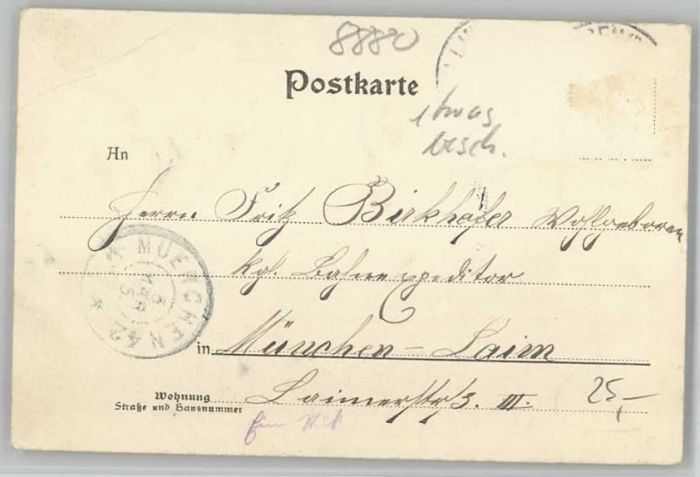 8880
Postkarte
etwas
besch.
An
Herrn Fritz Birkhofer Wohlgeboren
Kgl. Bahnexpeditor
MUENCHEN 42
in München-Laim
Wohnung
Straße und Hausnummer
Laimerstr. 3. III.
25,-